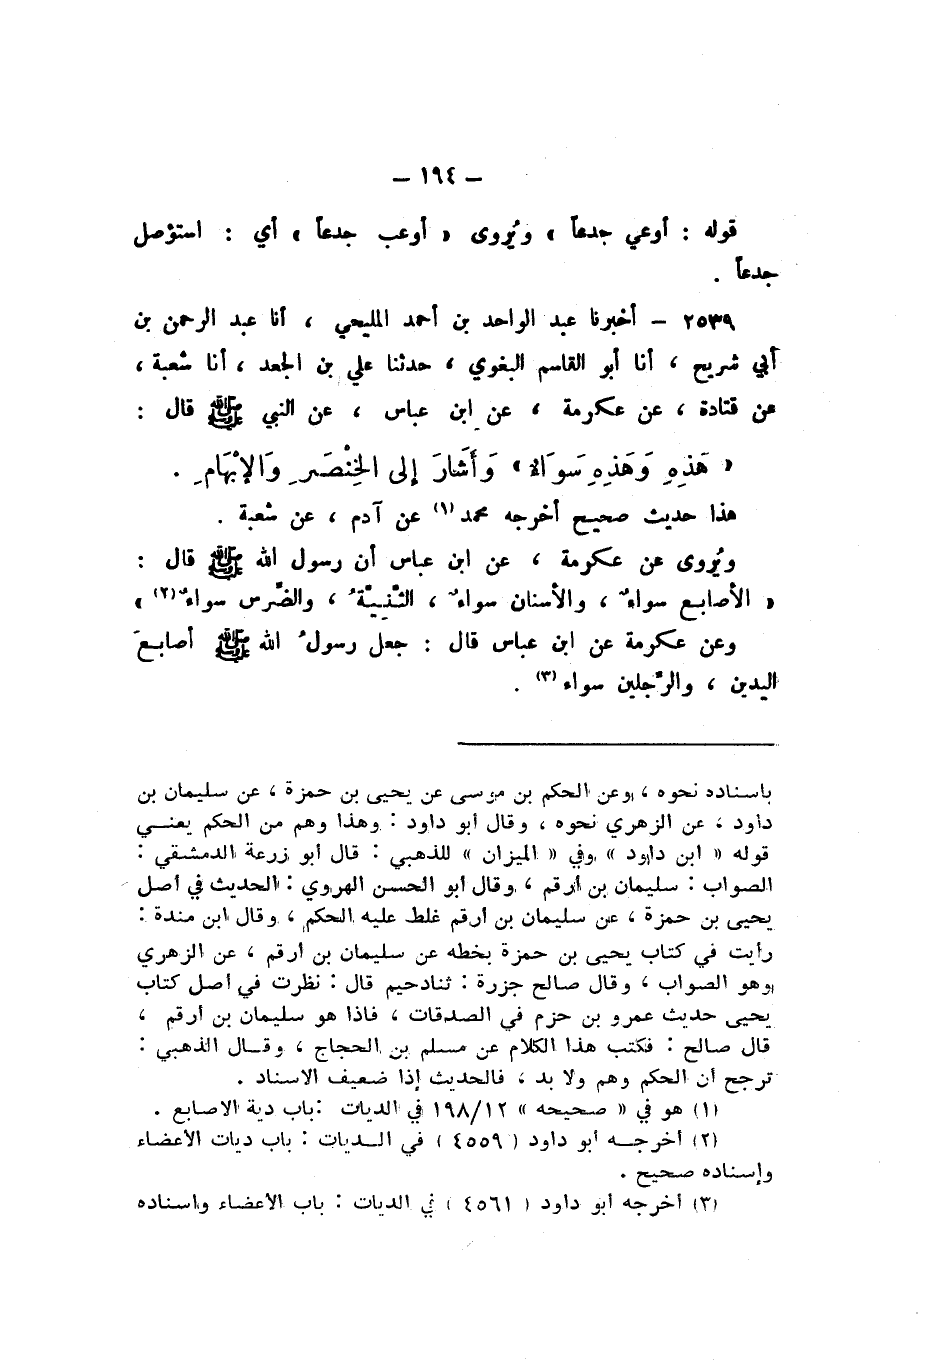 – ١٩٤ –
قوله : أوعي جدعاً » ويُروى « أوعب جدعاً » أي : استؤصل
جدعاً .
٢٥٣٩ – أخبرنا عبد الواحد بن أحمد المليحي ، أنا عبد الرحمن بن
أبي شريح ، أنا أبو القاسم البغوي ، حدثنا علي بن الجعد ، أنا شعبة ،
عن قتادة ، عن عكرمة ، عن ابن عباس ، عن النبي ﷺ قال :
« هَذِهِ وَهَذِهِ سَوَاءٌ » وَأَشَارَ إلى الخِنْصَرِ وَالإبْهَامِ .
هذا حديث صحيح أخرجه محمد (١) عن آدم ، عن شعبة .
ويُروى عن عكرمة ، عن ابن عباس أن رسول الله ﷺ قال :
« الأصابع سواءٌ ، والأسنان سواءٌ ، الثَّنِيَّةُ ، والضِّرس سواءٌ (٢) »
وعن عكرمة عن ابن عباس قال : جعل رسولُ الله ﷺ أصابعَ
اليدين ، والرِّجلين سواء (٣) .
باسناده نحوه ، وعن الحكم بن موسى عن يحيى بن حمزة ، عن سليمان بن
داود ، عن الزهري نحوه ، وقال أبو داود : وهذا وهم من الحكم يعنــي
قوله « ابن داود » وفي « الميزان » للذهبي : قال أبو زرعة الدمشقي :
الصواب : سليمان بن أرقم ، وقال أبو الحسن الهروي : الحديث في أصل
يحيى بن حمزة ، عن سليمان بن أرقم غلط عليه الحكم ، وقال ابن مندة :
رأيت في كتاب يحيى بن حمزة بخطه عن سليمان بن أرقم ، عن الزهري
وهو الصواب ، وقال صالح جزرة : ثنادحيم قال : نظرت في أصل كتاب
يحيى حديث عمرو بن حزم في الصدقات ، فاذا هو سليمان بن أرقم ،
قال صالح : فكتب هذا الكلام عن مسلم بن الحجاج ، وقــال الذهبي :
ترجح أن الحكم وهم ولا بد ، فالحديث إذا ضعيف الاسناد .
(١) هو في « صحيحه » ١٩٨/١٢ في الديات : باب دية الاصابع .
(٢) أخرجــه أبو داود ( ٤٥٥٩ ) في الــديات : باب ديات الأعضاء
وإسناده صحيح .
(٣) أخرجه أبو داود ( ٤٥٦١ ) في الديات : باب الأعضاء واسناده